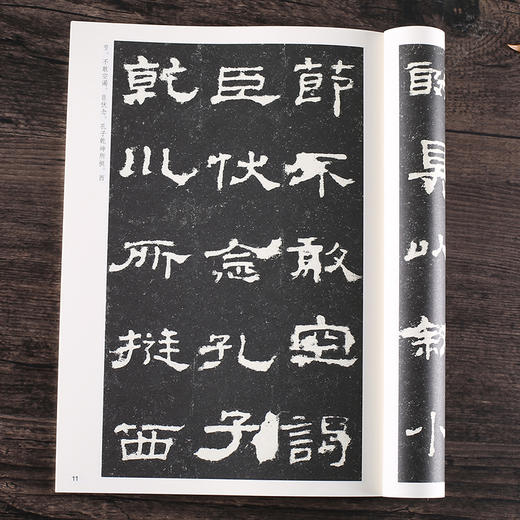 具以敘小
節不敢空謁
臣伏念孔子
乾川所挺西
节，不敢空谒。臣伏念，孔子乾坤所挺，西
11